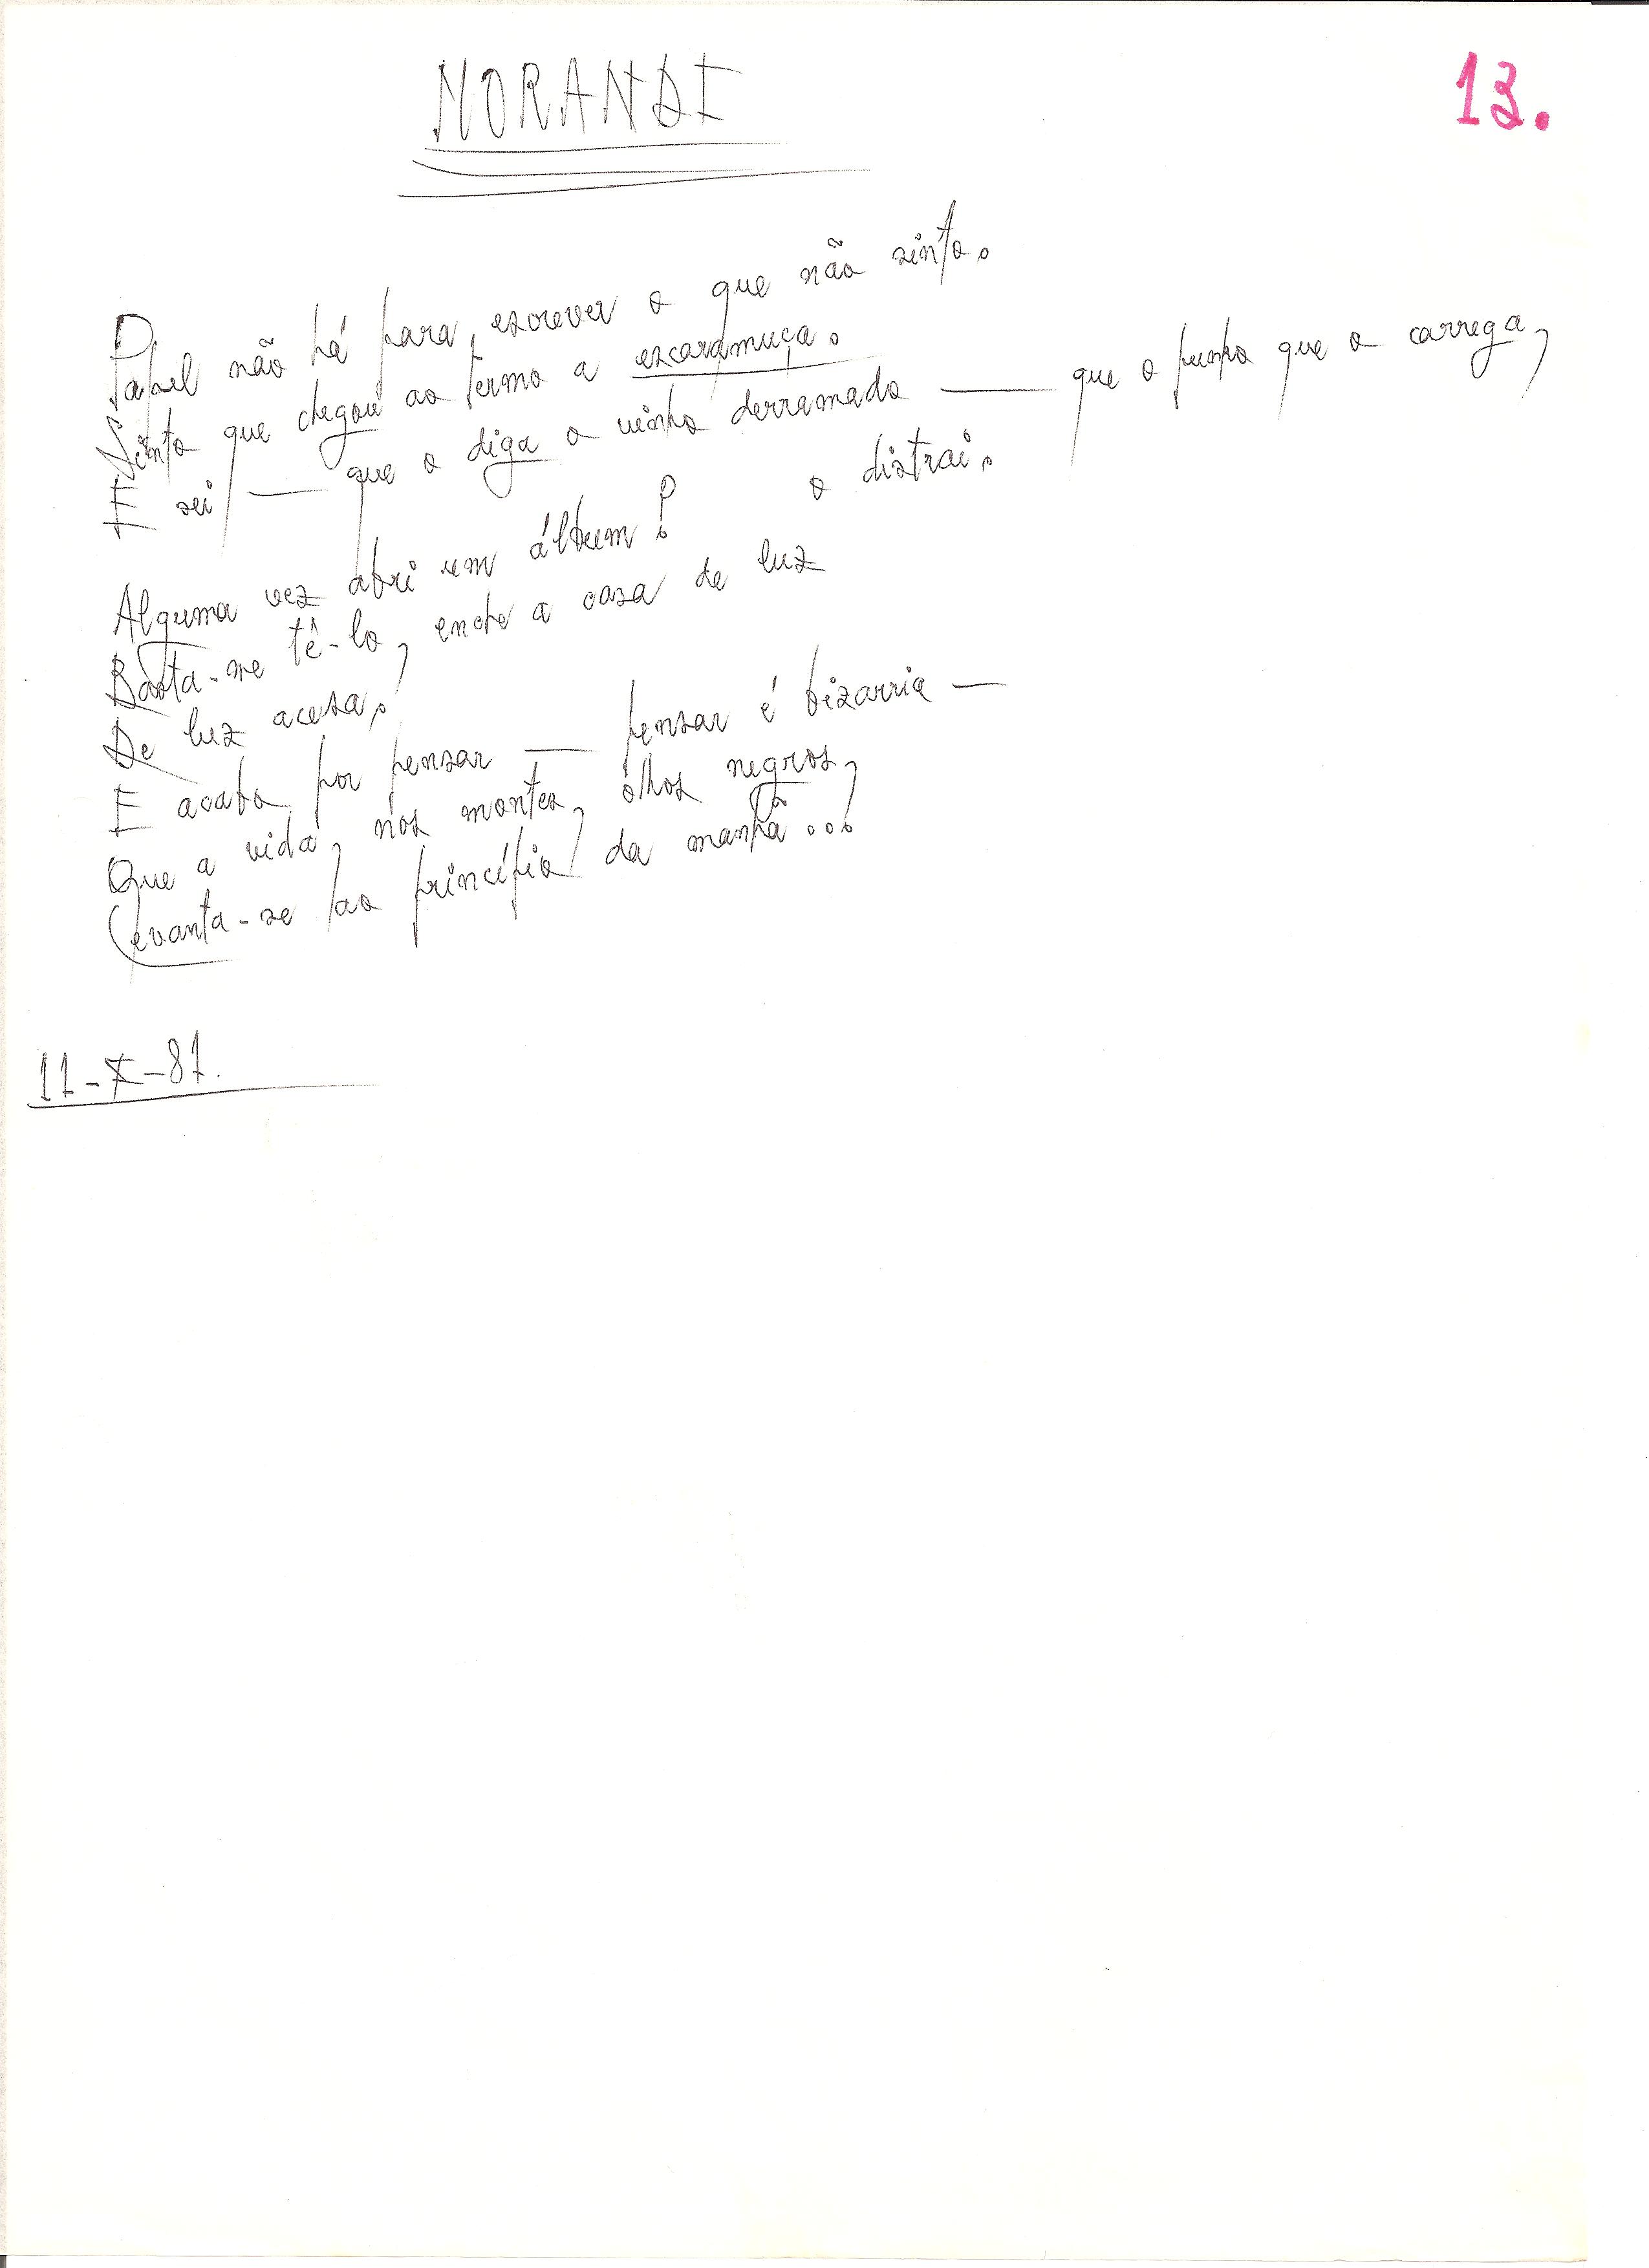 MORANDI
13.
Papel não há para escrever o que não sinto.
Sinto que chegou ao termo a escaramuça.
E sei — que o diga o vinho derramado — que o punho que o carrega,
o distrai.
Alguma vez abri um álbum?
Basta-me tê-lo, enche a casa de luz
De luz acesa.
E acabo por pensar — pensar é bizarria —
Que a vida, nos montes, olhos negros,
Levanta-se ao princípio da manhã...
11-X-81.